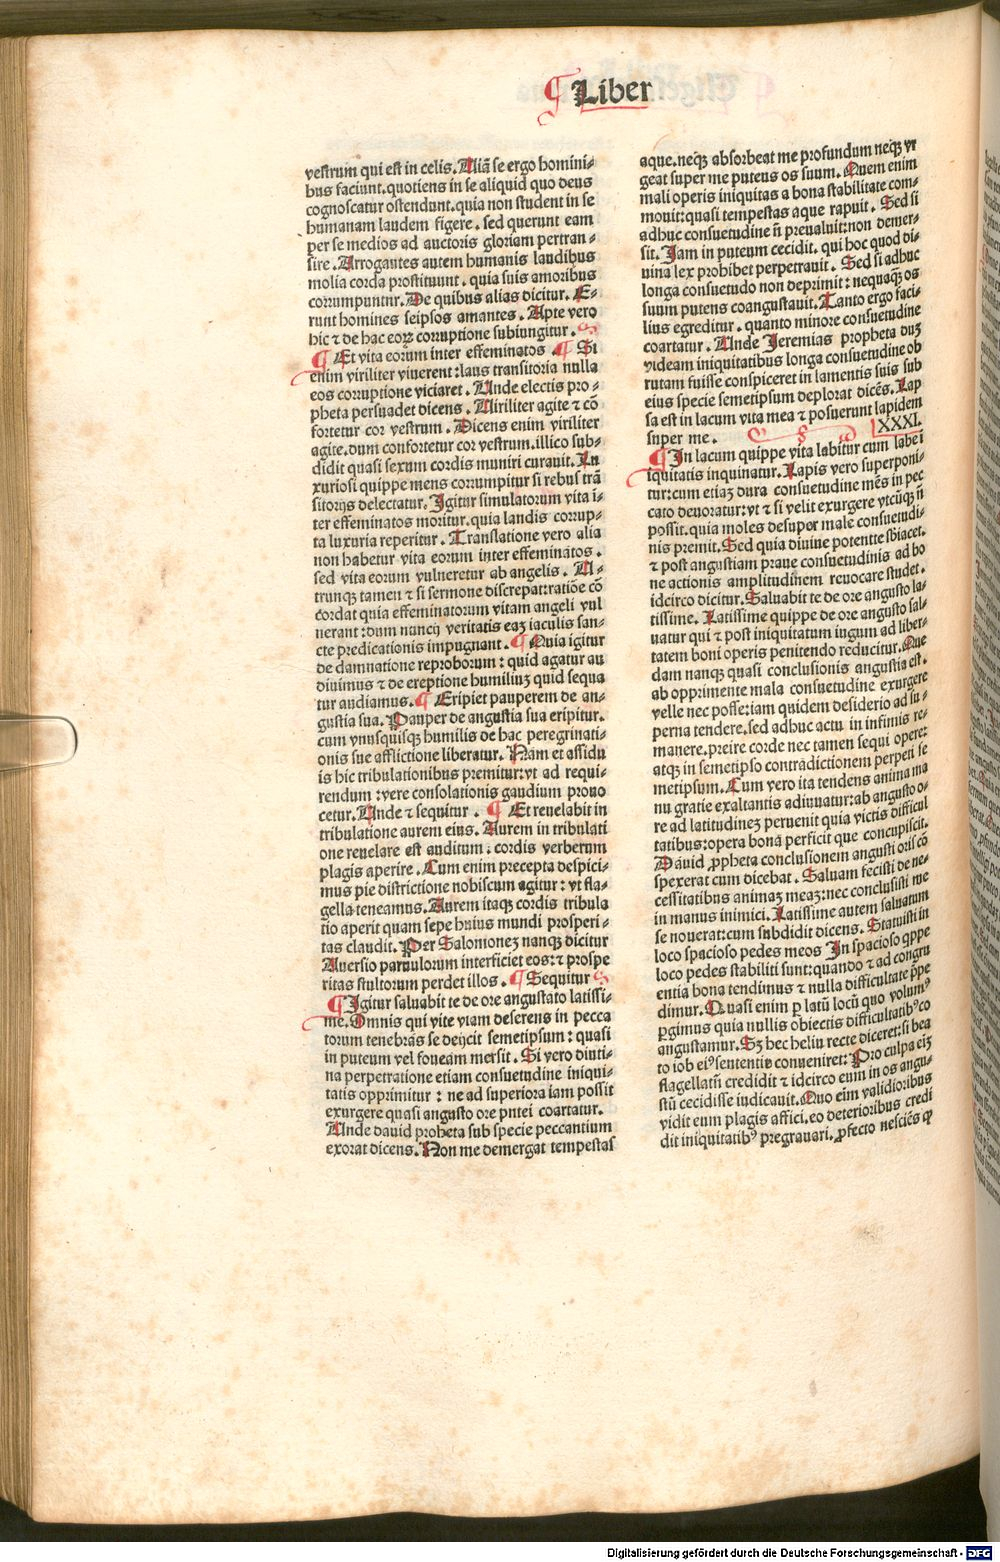 ¶ Liber
vestrum qui est in celis. Aliã se ergo homini-
bus faciunt. quotiens in se aliquid quo deus
cognoscatur ostendunt. quia non student in se
humanam laudem figere. sed querunt eam
per se medios ad auctoris gloriam pertran-
sire. Arrogantes autem humanis laudibus
molia corda prostituunt. quia suis amoribus
corrumpuntur. De quibus alias dicitur. E-
runt homines seipsos amantes. Apte vero
hic ⁊ de hac eoꝝ corruptione subiungitur.
¶ Et vita eorum inter effeminatos. ¶ Si
enim viriliter viuerent: laus transitoria nulla
eos corruptione viciaret. Unde electis pro-
pheta persuadet dicens. Uiriliter agite ⁊ cõ
fortetur cor vestrum. Dicens enim viriliter
agite. dum confortetur cor vestrum. illico sub-
didit quasi sexum cordis muniri curauit. Lu
xuriosi quippe mens corrumpitur si rebus trã
sitorijs delectatur. Igitur simulatorum vita i-
ter effeminatos moritur. quia laudis corrup-
ta luxuria reperitur. Translatione vero alia
non habetur vita eorum inter effeminatos.
sed vita eorum vulneretur ab angelis. U-
trunqꝫ tamen ⁊ si sermone discrepat: ratiõe cõ
cordat quia effeminatorum vitam angeli vul
nerant: dum nuncij veritatis eaꝫ iaculis san-
cte predicationis impugnant. ¶ Quia igitur
de damnatione reproborum: quid agatur au
diuimus ⁊ de ereptione humiliuꝫ quid sequa
tur audiamus. ¶ Eripiet pauperem de an-
gustia sua. Pauper de angustia sua eripitur.
cum vnusquisqꝫ humilis de hac peregrinati-
onis sue afflictione liberatur. Nam et assidu
is hic tribulationibus premitur: vt ad requi-
rendum: vere consolationis gaudium prouo
cetur. Unde ⁊ sequitur. ¶ Et reuelabit in
tribulatione aurem eius. Aurem in tribulati
one reuelare est auditum: cordis verberum
plagis aperire. Cum enim precepta despici-
mus pie districtione nobiscum agitur: vt fla-
gella teneamus. Aurem itaqꝫ cordis tribula
tio aperit quam sepe huius mundi prosperi-
tas claudit. Per Salomoneꝫ nanqꝫ dicitur
Auersio paruulorum interficiet eos: ⁊ prospe
ritas stultorum perdet illos. ¶ Sequitur
¶ Igitur saluabit te de ore angustato latissi-
me. Omnis qui vite viam deserens in pecca
torum tenebras se deijcit semetipsum: quasi
in puteum vel foueam mersit. Si vero diuti-
na perpetratione etiam consuetudine iniqui-
tatis opprimitur: ne ad superiora iam possit
exurgere quasi angusto ore putei coartatur.
Unde dauid proheta sub specie peccantium
exorat dicens. Non me demergat tempestas
aque. neqꝫ absorbeat me profundum neqꝫ vr
geat super me puteus os suum. Quem enim
mali operis iniquitas a bona stabilitate com-
mouit: quasi tempestas aque rapuit. Sed si
adhuc consuetudine ñ preualuit: non demer-
sit. Jam in puteum cecidit. qui hoc quod di-
uina lex prohibet perpetrauit. Sed si adhuc
longa consuetudo non deprimit: nequaqꝫ os
suum puteus coangustauit. Tanto ergo faci-
lius egreditur. quanto minore consuetudine
coartatur. Unde Jeremias propheta duꝫ
videam iniquitatibus longa consuetudine ob
rutam fuisse conspiceret in lamentis suis sub
eius specie semetipsum deplorat dicẽs. Lap
sa est in lacum vita mea ⁊ posuerunt lapidem
super me. XXXI.
¶ In lacum quippe vita labitur cum labe i
iquitatis inquinatur. Lapis vero superponi-
tur: cum etiaꝫ dura consuetudine mẽs in pec
cato deuoratur: vt ⁊ si velit exurgere vtcũqꝫ ñ
possit. quia moles desuper male consuetudi-
nis premit. Sed quia diuine potentie sbiacet.
⁊ post angustiam praue consuetudinis ad bo
ne actionis amplitudinem reuocare studet.
idcirco dicitur. Saluabit te de ore angusto la-
tissime. Latissime quippe de ore angusto sal-
uatur qui ⁊ post iniquitatum iugum ad liber-
tatem boni operis penitendo reducitur. Que
dam nanqꝫ quasi conclusionis angustia est.
ab opprimente mala consuetudine exurgere
velle nec posse: iam quidem desiderio ad su-
perna tendere. sed adhuc actu in infimis re-
manere. preire corde nec tamen sequi opere:
atqꝫ in semetipso contradictionem perpeti se
metipsum. Cum vero ita tendens anima ma
nu gratie exaltantis adiuuatur: ab angusto o-
re ad latitudineꝫ peruenit quia victis difficul
tatibus: opera bona perficit que concupiscit.
Dauid ꝓpheta conclusionem angusti oris cõ
spexerat cum dicebat. Saluam fecisti de ne-
cessitatibus animaꝫ meaꝫ: nec conclusisti me
in manus inimici. Latissime autem saluatum
se nouerat: cum subdidit dicens. Statuisti in
loco spacioso pedes meos In spacioso qͥppe
loco pedes stabiliti sunt: quando ⁊ ad congru
entia bona tendimus ⁊ nulla difficultate p̃pe
dimur. Quasi enim ꝑ latũ locũ quo volumꝰ
ꝑgimus quia nullis obiectis difficultatibꝰ co
angustamur. Sꝫ hec heliu recte diceret: si bea
to iob eiꝰ sententie conueniret: Pro culpa eiꝫ
flagellatũ credidit ⁊ idcirco eum in os angu-
stũ cecidisse iudicauit. Quo eim validioribus
vidit eum plagis affici. eo deterioribus credi
dit iniquitatibꝰ pregrauari. ꝓfecto nesciẽs ꝙ
Digitalisierung gefördert durch die Deutsche Forschungsgemeinschaft - DFG